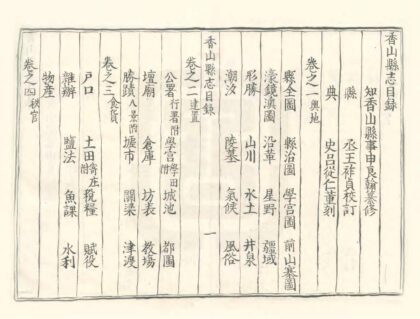 香山縣志目録
知香山縣事申良翰纂修
縣 丞王祚貞校訂
典 史呂從仁董刻
卷之一 輿地
縣全圖 縣治圖 學宮圖 前山寨圖
濠鏡澳圖 沿革 星野 疆域
形勝 山川 水土 井泉
潮汐 陵墓 氣候 風俗
香山縣志目録 一
卷之二 建置
公署 行署附 學宮 學田附 城池 都圖
壇廟 倉庫 坊表 教塲
勝蹟 八景附 墟市 關梁 津渡
卷之三 食貨
戶口 土田 寄庄附 稅糧 賦役
雜辦 鹽法 魚課 水利
物產
卷之四 秩官